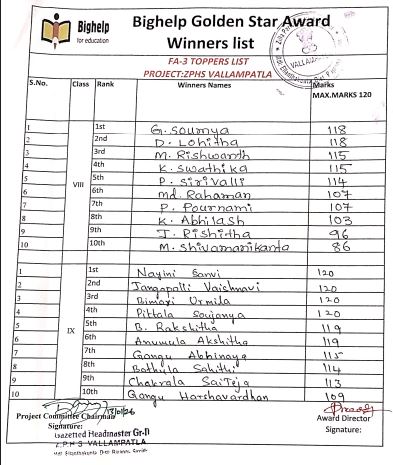 Bighelp
for education
Bighelp Golden Star Award
Winners list
FA-3 TOPPERS LIST
PROJECT:ZPHS VALLAMPATLA
S.No. Class Rank Winners Names Marks
MAX.MARKS 120
VIII
1 1st G. Soumya 118
2 2nd D. Lohitha 118
3 3rd M. Rishwanth 115
4 4th K. Swathika 115
5 5th P. Sirivalli 114
6 6th Md. Rahaman 107
7 7th P. Pournami 107
8 8th K. Abhilash 103
9 9th J. Rishitha 96
10 10th M. Shivamanikanta 86
IX
1 1st Nayini Sanvi 120
2 2nd Jangapalli Vaishnavi 120
3 3rd Bimari Urmila 120
4 4th Pittala Soujanya 120
5 5th B. Rakshitha 119
6 6th Anumula Akshitha 119
7 7th Gangu Abhinaya 115
8 8th Bathula Sahithi 114
9 9th Chakrala SaiTeja 113
10 10th Gangu Harshavardhan 109
Project Committee Chairman
Signature:
Award Director
Signature:
Gazetted Headmaster Gr-II
Z.P.H.S VALLAMPATLA